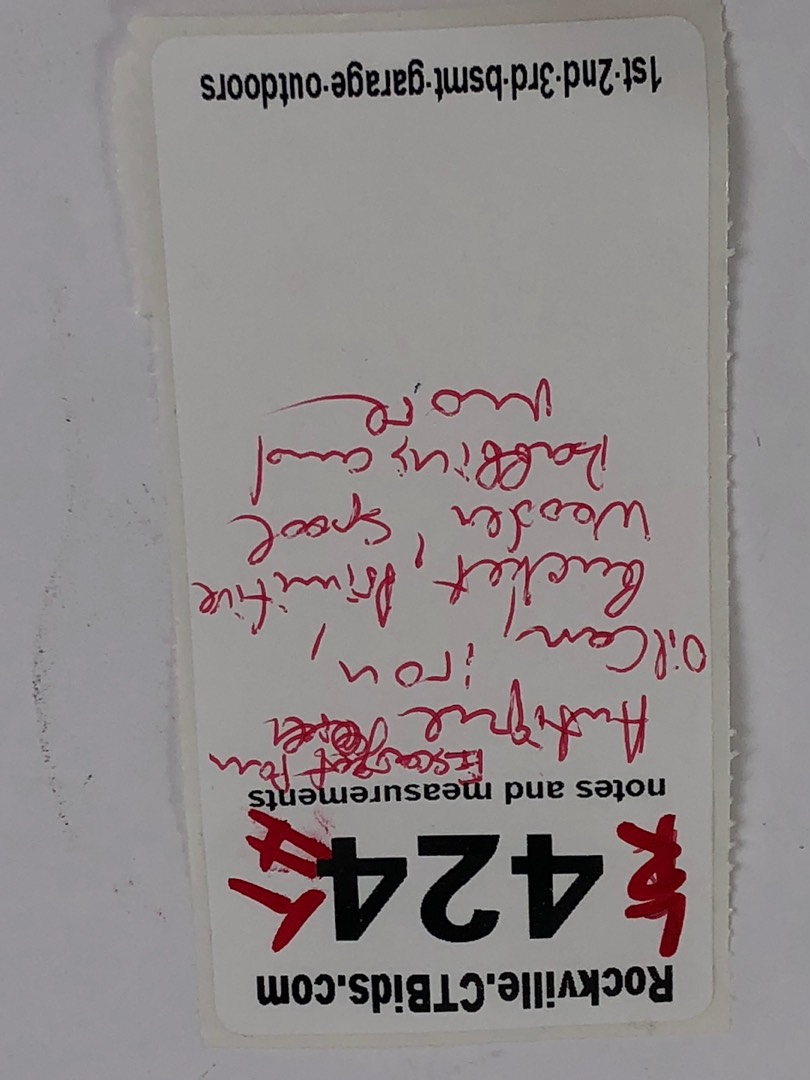 Rockville.CTBids.com
424
notes and measurements
Antique
iron,
Oil Can,
Bucket, Primitive
Wooden, Spool
and
more
1st·2nd·3rd·bsmt·garage·outdoors